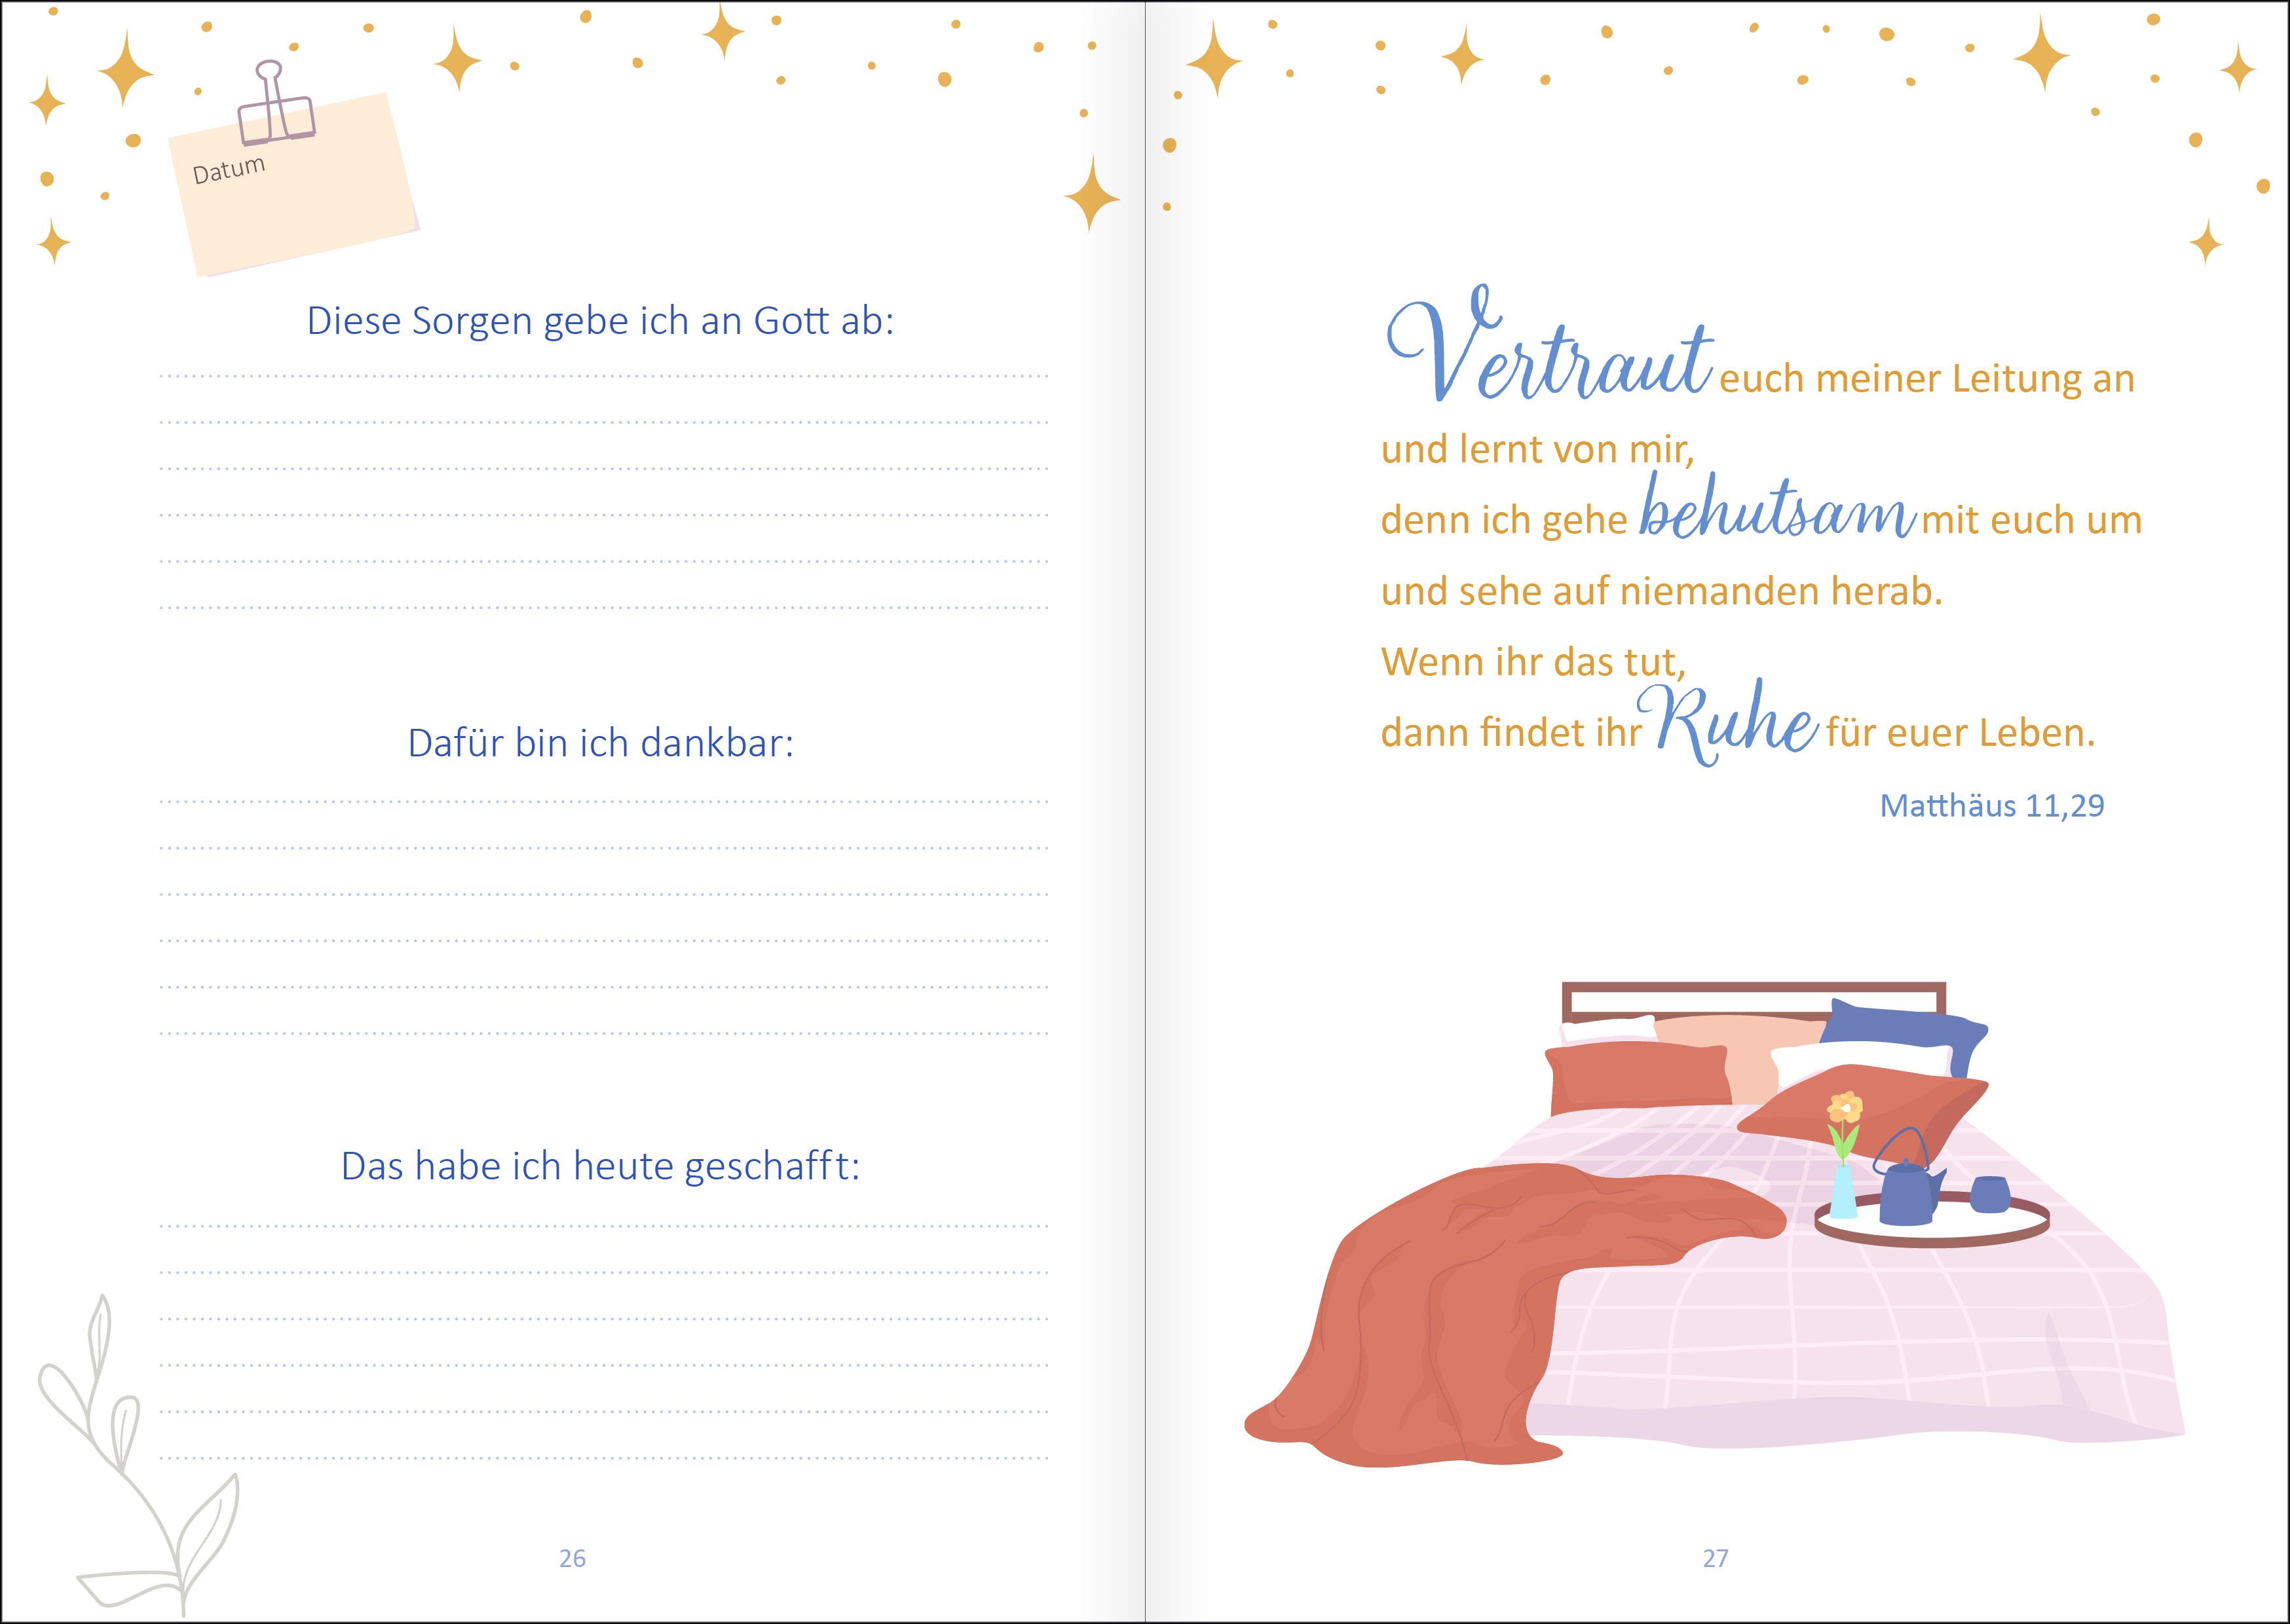 Datum
Diese Sorgen gebe ich an Gott ab:
Dafür bin ich dankbar:
Das habe ich heute geschafft:
26
Vertraut euch meiner Leitung an
und lernt von mir,
denn ich gehe behutsam mit euch um
und sehe auf niemanden herab.
Wenn ihr das tut,
dann findet ihr Ruhe für euer Leben.
Matthäus 11,29
27